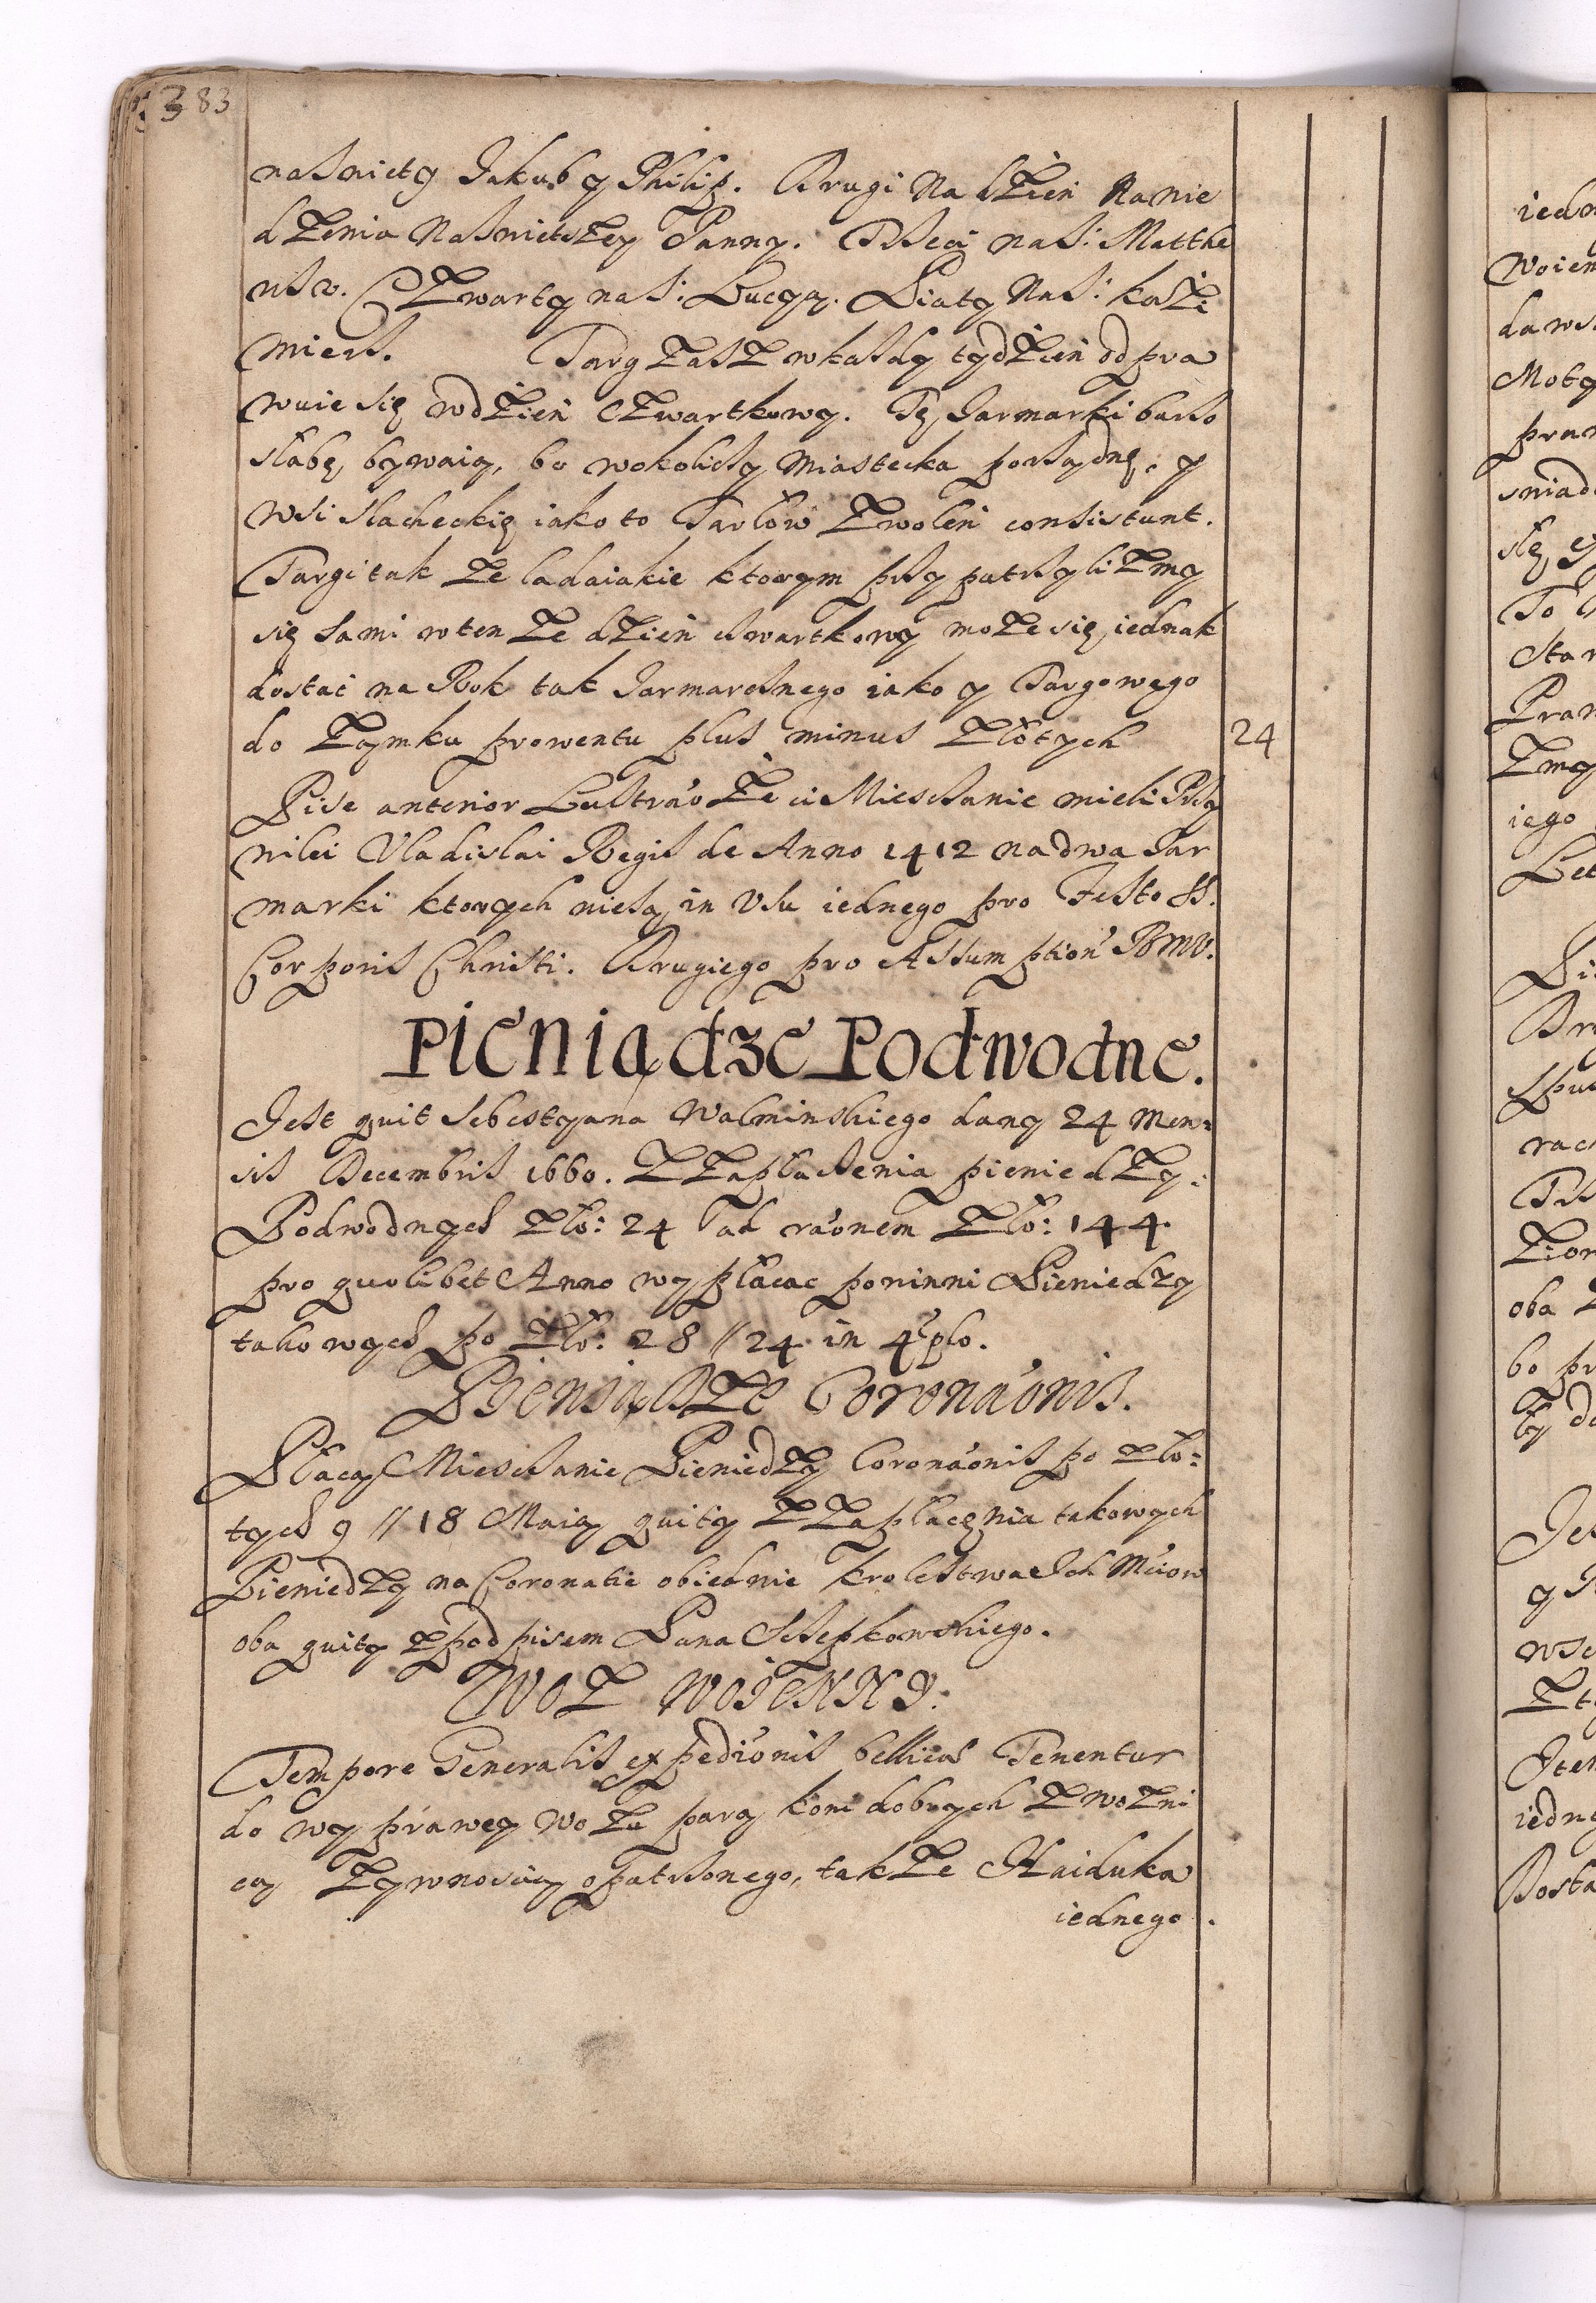 383
naswięty Jakub y Philip. Drugi Na dzień Nanie
dzenia Naswietszey Panny. Trzeci na S: Matthe
usza. Czwarty na S: Lucyą. Piąty Na S: Kazi
mierz. Targ zasz wkażdy tydzień odpra
wuie się wdzień czwartkowy. Tę Jarmarki barzo
słabę bywaią, bo wokoliczy Miastecka porządnę. y
wsi slacheckię iako to Tarłów Zwoleń consistunt.
Targi tak ze ladaiakie ktorym przypatrzylizmy
się sami wten ze dzień czwartkowy moze się iednak
dostać na Rok tak Jarmarcznego iako y Targowego
do Zamku prowentu plus minus Złotych 24
Pise anterior Lustrao Ze ci Miesczanie mieli Przy
wilei Vladislai Regis de Anno 1412 na dwa Jar
marki ktorych niesą in Usu iednego pro Festo SS.
Corporis Christi. Drugiego pro Assumption BMV.
Pieniądze Podwodne.
Jest quit Sebestyana Walminskiego dany 24 Men:
sis Decembris 1660. Z Zapłaczenia pieniedzy:
Podwodnych Zło: 24 ad raonem Zło: 144
pro quolibet Anno wypłacac powinni Pieniedzy
takowych po Zło: 28 // 24 in 4plo.
Pieniądze Coronaonis.
Płacą Miesczanie Pieniedzy Coronaonis po zło:
tych 9 // 18 Maią quity Z Zapłacęnia takowych
Pieniedzy na Coronatie obiednie Krolestwa Ich Mciow
oba quity z podpisem Pana Sczepkowskiego.
Woz Woienny.
Tempore Generalis expedionis bellicae Tenentur
do wyprawey Wozu parą koni dobrych Zwozni
cą Zywnoscią opatrzonego, takze Haiduka
iednego.
iedn
Woien
daws
Moty
To
Star
Zmy
iego
oba
y
iedne
Dosta